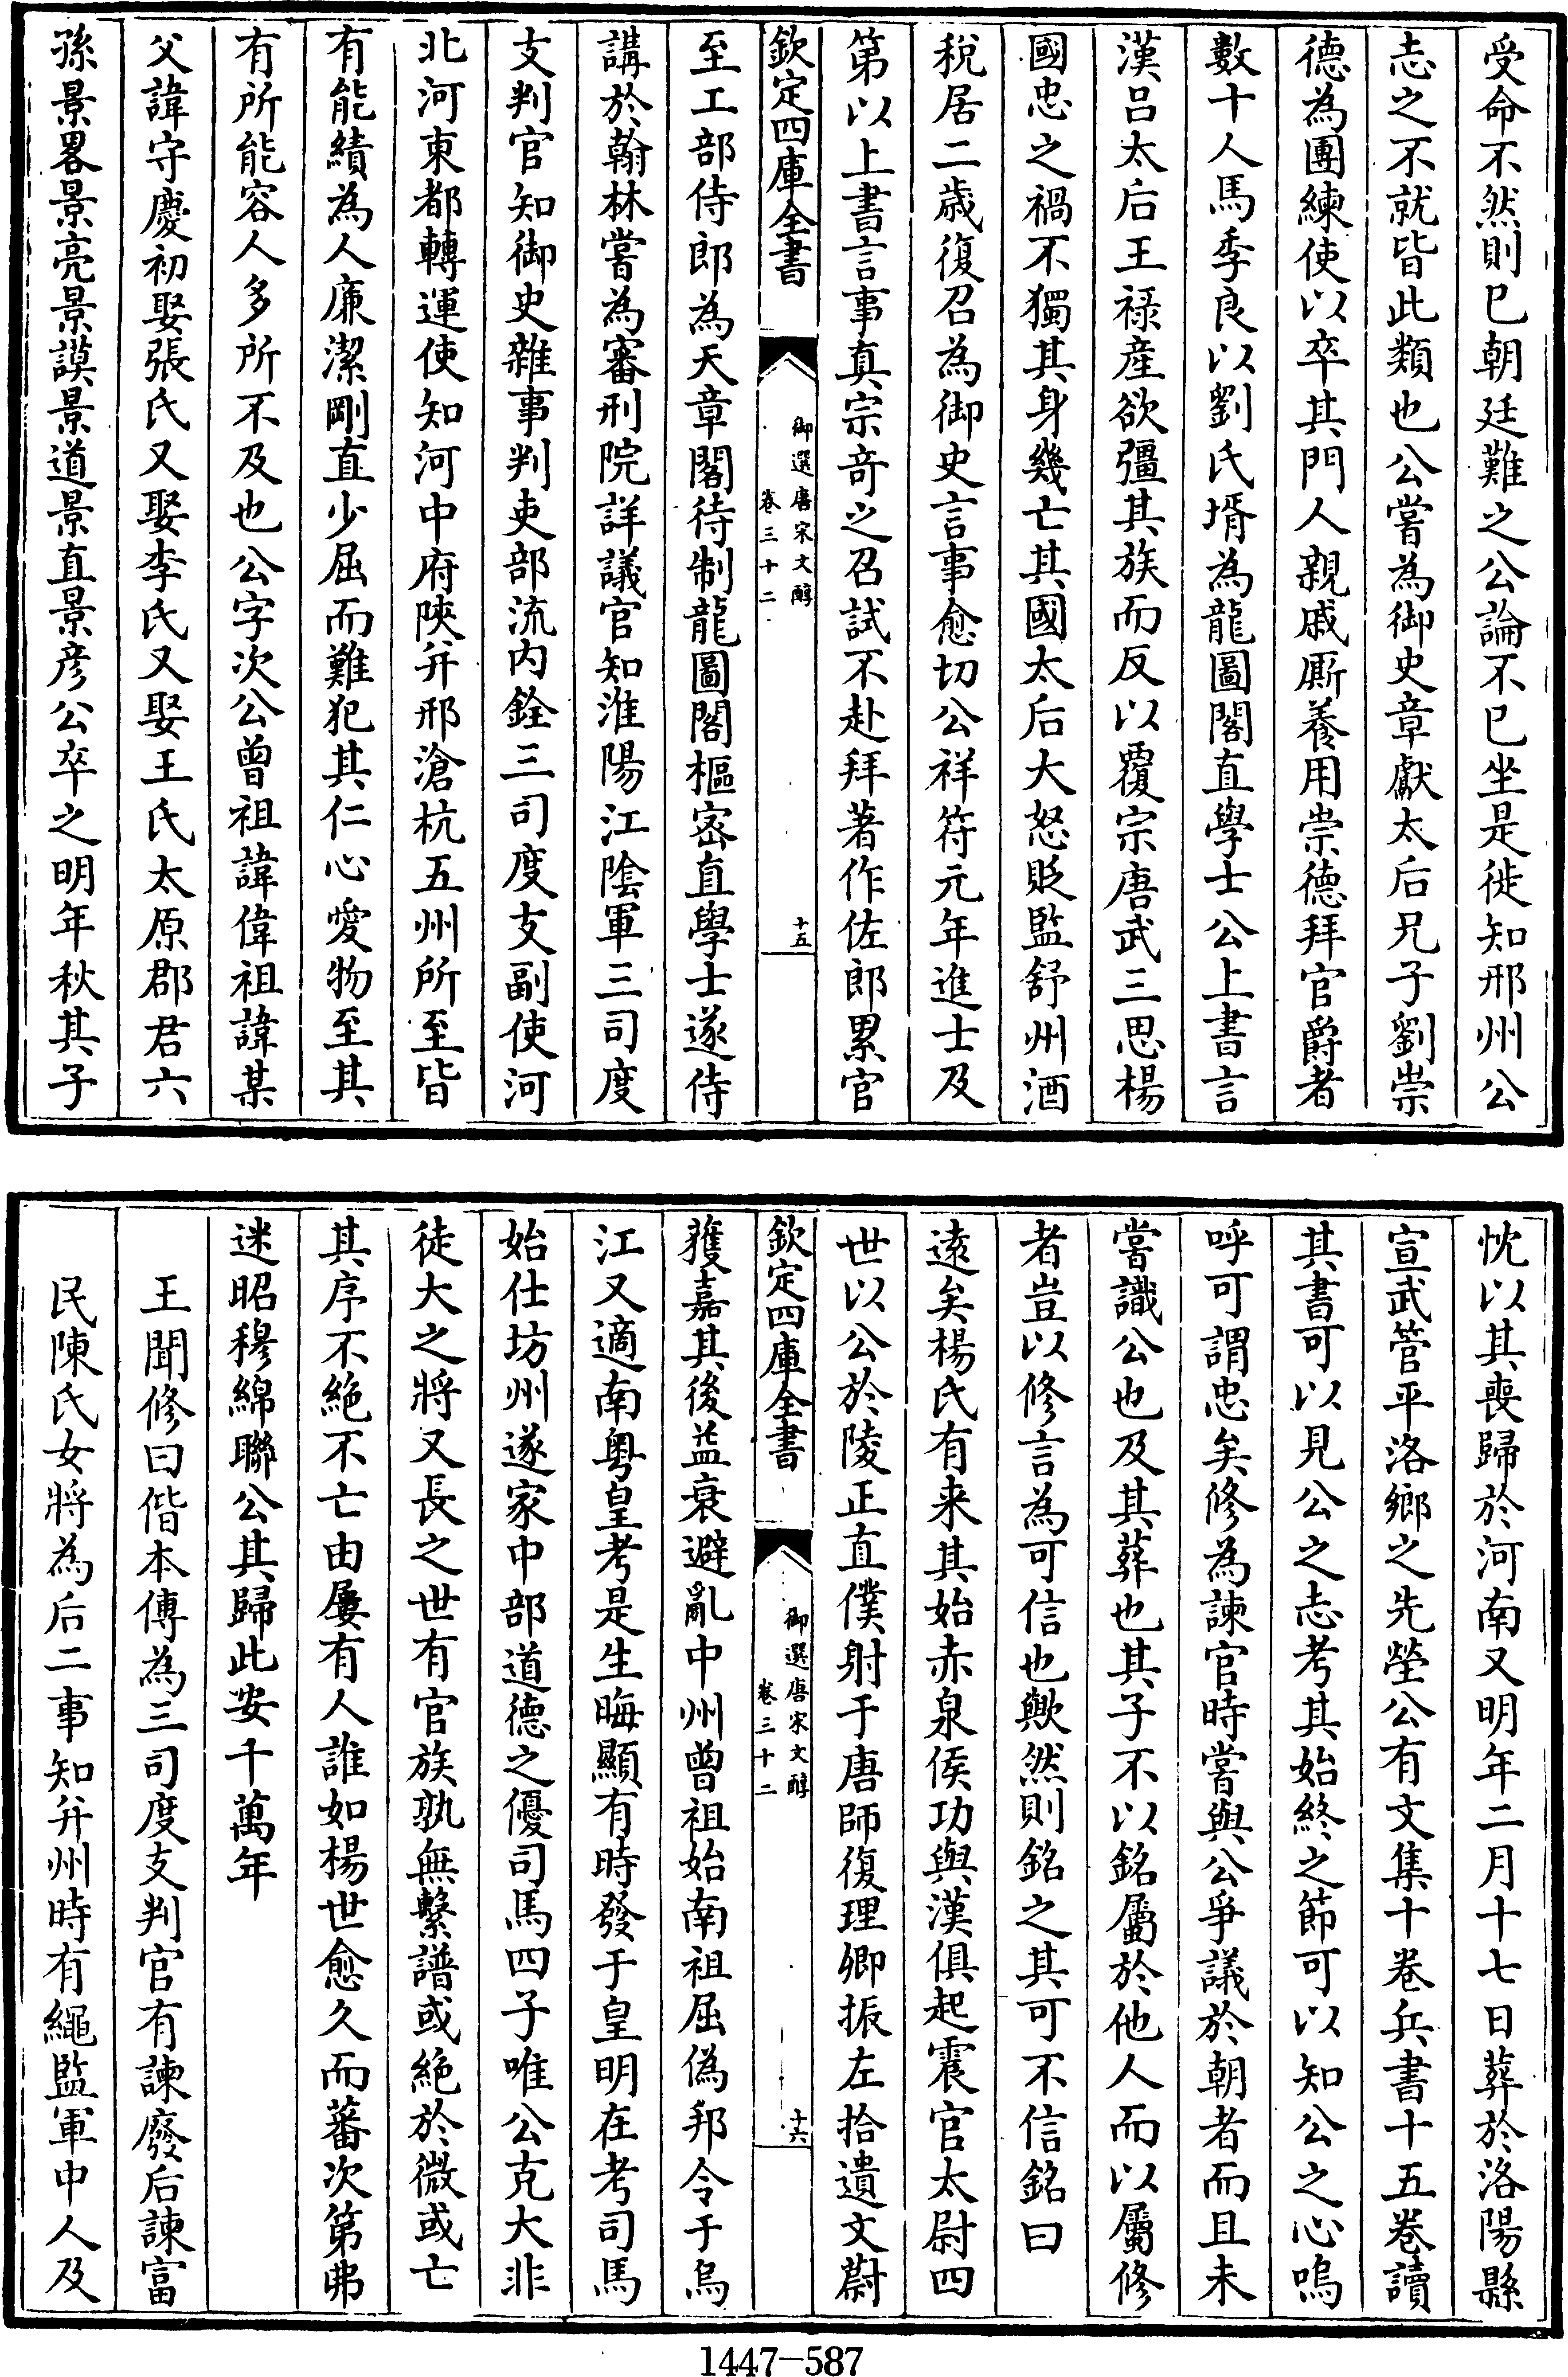 受命不然則已朝廷難之公論不已坐是徙知邢州公
志之不就皆此類也公嘗為御史章獻太后兄子劉崇
德為團練使以卒其門人親戚厮養用崇德拜官爵者
數十人馬季良以劉氏壻為龍圖閣直學士公上書言
漢吕太后王禄産欲彊其族而反以覆宗唐武三思楊
國忠之禍不獨其身幾亡其國太后大怒貶監舒州酒
税居二歳復召為御史言事愈切公祥符元年進士及
第以上書言事真宗竒之召試不赴拜著作佐郎累官
欽定四庫全書
御選唐宋文醇
卷三十二
十五
至工部侍郎為天章閣待制龍圖閣樞宻直學士遂侍
講於翰林嘗為審刑院詳議官知淮陽江隂軍三司度
支判官知御史雜事判吏部流内銓三司度支副使河
北河東都轉運使知河中府陜并邢滄杭五州所至皆
有能績為人亷潔剛直少屈而難犯其仁心愛物至其
有所能容人多所不及也公字次公曾祖諱偉祖諱某
父諱守慶初娶張氏又娶李氏又娶王氏太原郡君六
孫景畧景亮景謨景道景直景彦公卒之明年秋其子
忱以其喪歸於河南又明年二月十七日葬於洛陽縣
宣武管平洛鄉之先塋公有文集十卷兵書十五卷讀
其書可以見公之志考其始終之節可以知公之心嗚
呼可謂忠矣修為諫官時嘗與公爭議於朝者而且未
嘗識公也及其葬也其子不以銘屬於他人而以屬修
者豈以修言為可信也歟然則銘之其可不信銘曰
逺矣楊氏有来其始赤泉侯功與漢俱起震官太尉四
世以公於陵正直僕射于唐師復理卿振左拾遺文蔚
欽定四庫全書
御選唐宋文醇
卷三十二
十六
獲嘉其後益衰避亂中州曾祖始南祖屈偽邦令于烏
江又適南粤皇考是生晦顯有時發于皇明在考司馬
始仕坊州遂家中部道德之優司馬四子唯公克大非
徒大之將又長之世有官族孰無繫譜或絶於微或亡
其序不絶不亡由屢有人誰如楊世愈久而蕃次第弗
迷昭穆綿聯公其歸此安千萬年
王聞修曰偕本傳為三司度支判官有諫廢后諫富
民陳氏女將為后二事知并州時有繩監軍中人及
1447-587